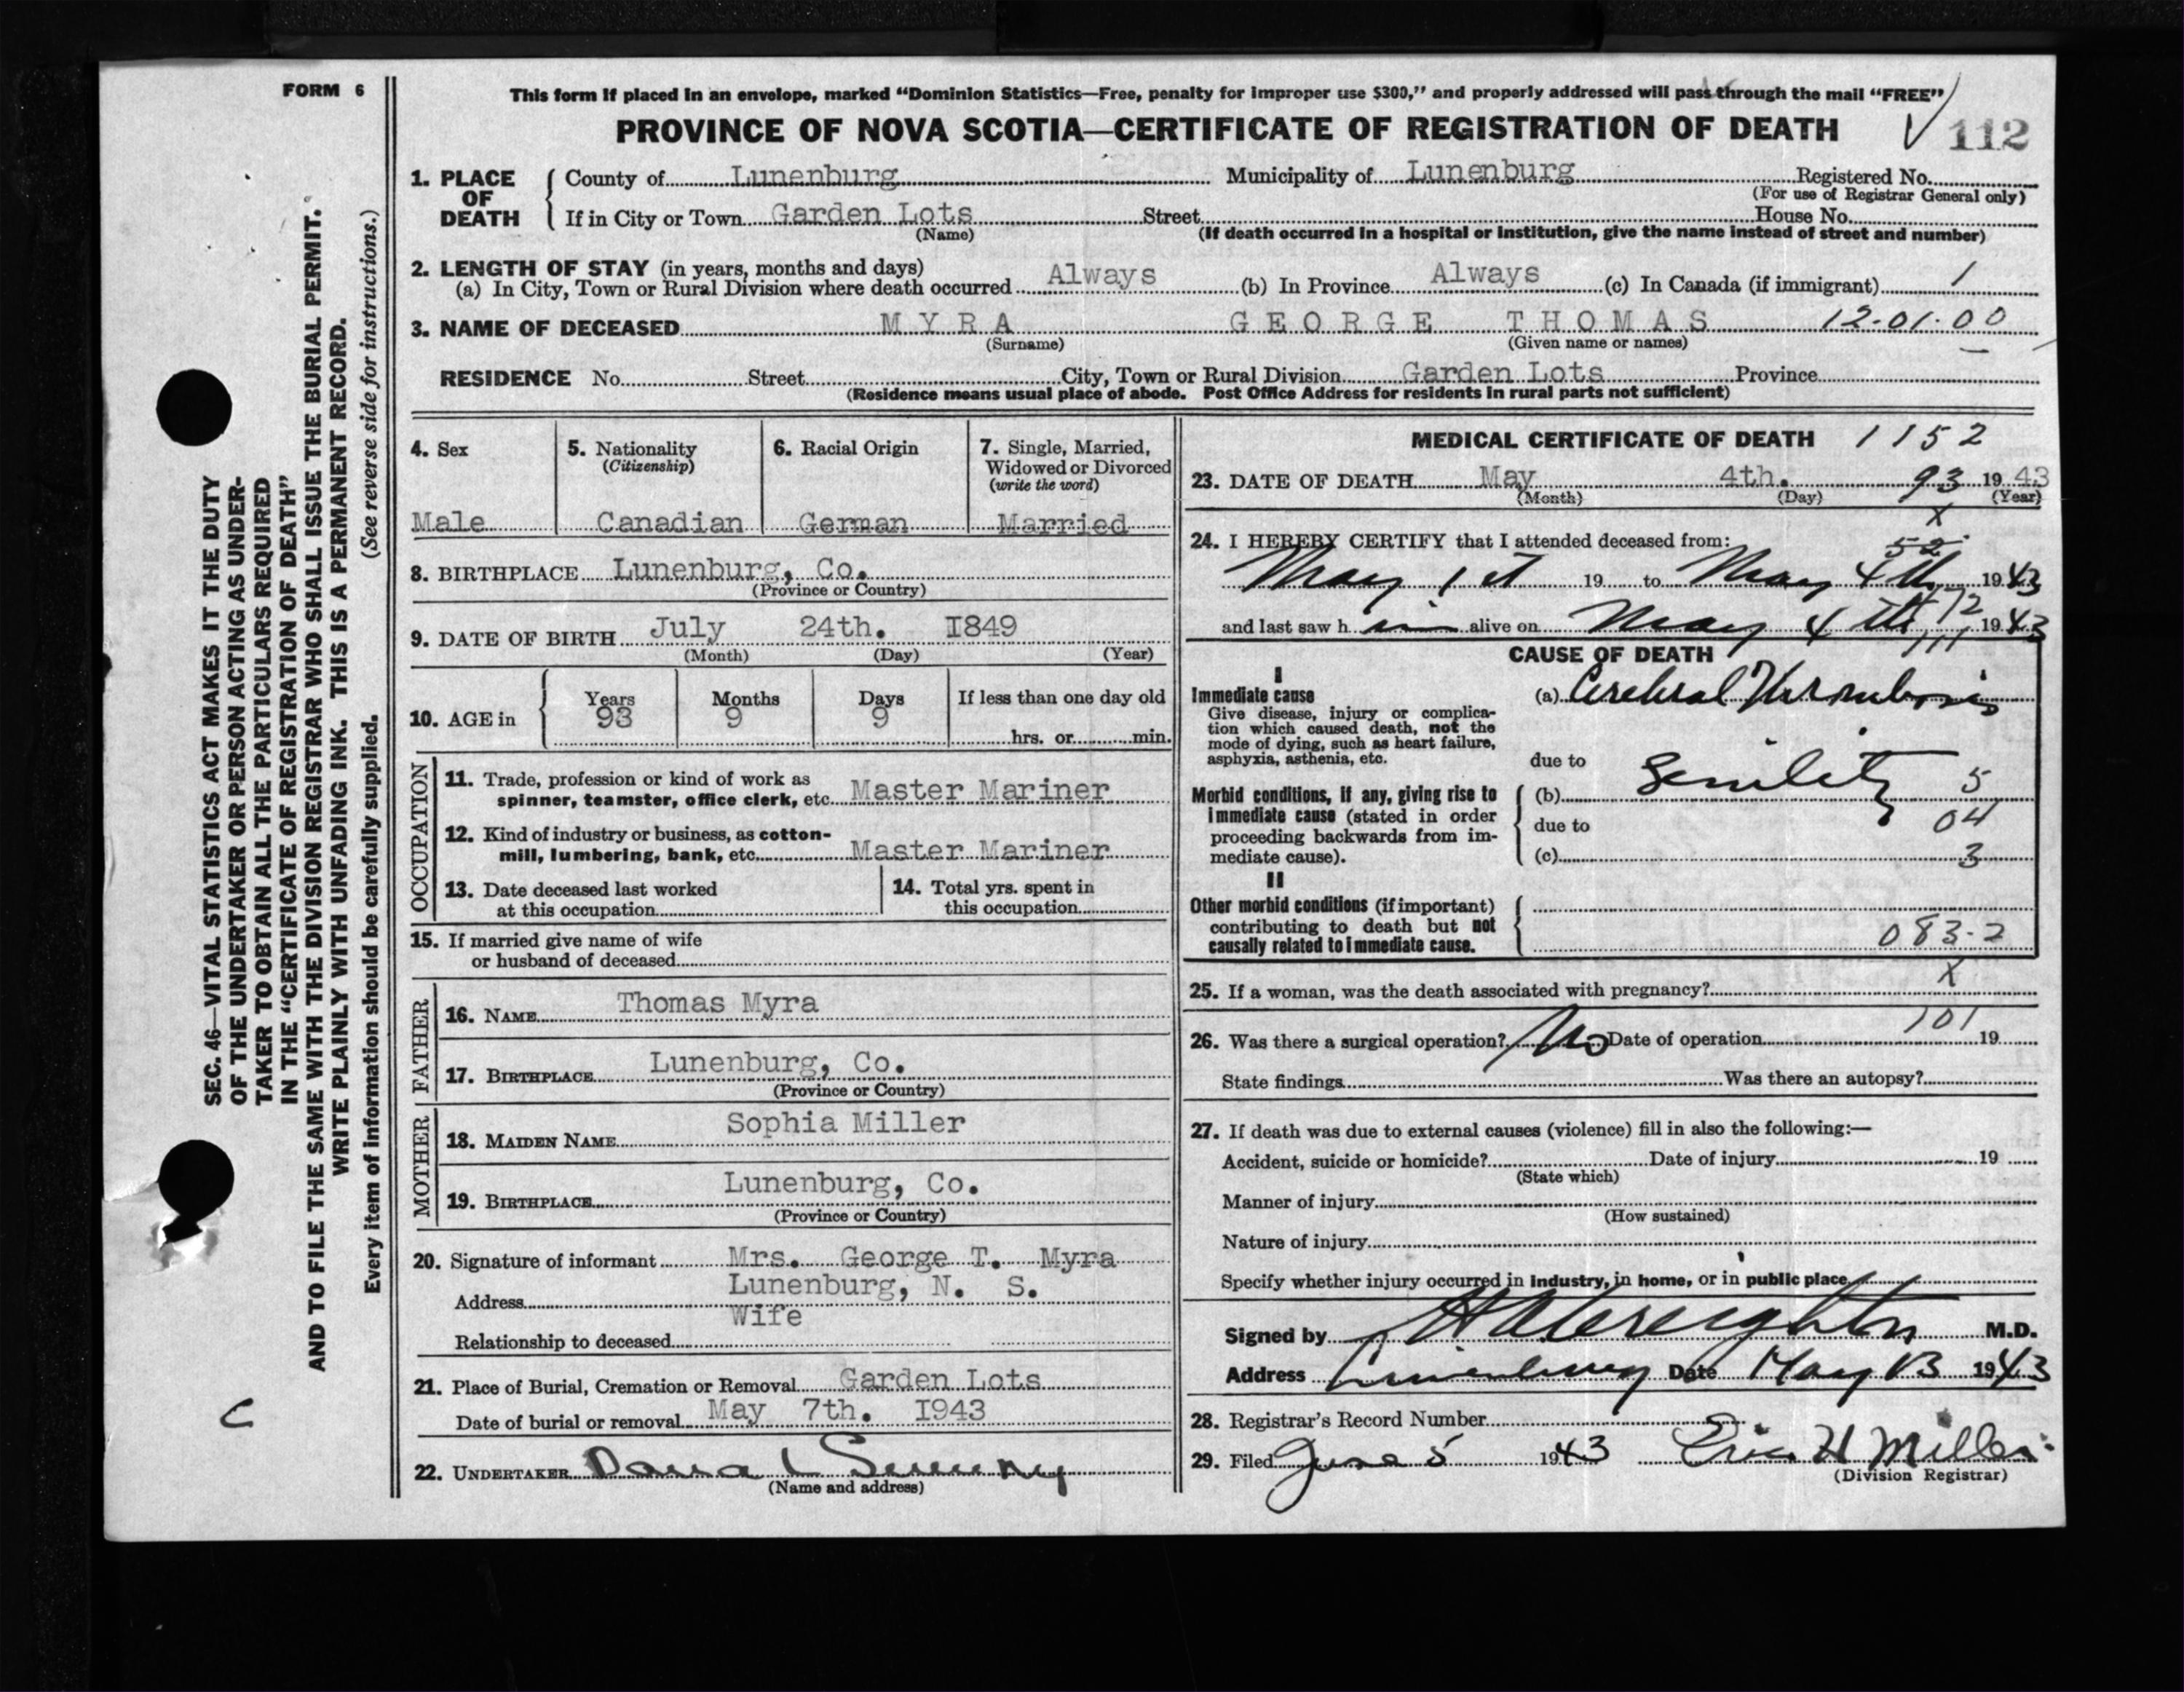 FORM 6
This form if placed in an envelope, marked “Dominion Statistics—Free, penalty for improper use $300,” and properly addressed will pass through the mail “FREE”
PROVINCE OF NOVA SCOTIA—CERTIFICATE OF REGISTRATION OF DEATH
112
1. PLACE OF DEATH
County of Lunenburg Municipality of Lunenburg Registered No.
(For use of Registrar General only)
If in City or Town Garden Lots Street House No.
(Name) (If death occurred in a hospital or institution, give the name instead of street and number)
2. LENGTH OF STAY (in years, months and days)
(a) In City, Town or Rural Division where death occurred Always (b) In Province Always (c) In Canada (if immigrant) 1
3. NAME OF DECEASED MYRA GEORGE THOMAS 12-01-00
(Surname) (Given name or names)
RESIDENCE No. Street City, Town or Rural Division Garden Lots Province
(Residence means usual place of abode. Post Office Address for residents in rural parts not sufficient)
4. Sex
Male
5. Nationality
(Citizenship)
Canadian
6. Racial Origin
German
7. Single, Married,
Widowed or Divorced
(write the word)
Married
8. BIRTHPLACE Lunenburg, Co.
(Province or Country)
9. DATE OF BIRTH July 24th. I849
(Month) (Day) (Year)
10. AGE in
Years Months Days If less than one day old
93 9 9
hrs. or min.
OCCUPATION
11. Trade, profession or kind of work as
spinner, teamster, office clerk, etc. Master Mariner
12. Kind of industry or business, as cotton-
mill, lumbering, bank, etc. Master Mariner
13. Date deceased last worked
at this occupation
14. Total yrs. spent in
this occupation
15. If married give name of wife
or husband of deceased
FATHER
16. NAME Thomas Myra
17. BIRTHPLACE Lunenburg, Co.
(Province or Country)
MOTHER
18. MAIDEN NAME Sophia Miller
19. BIRTHPLACE Lunenburg, Co.
(Province or Country)
20. Signature of informant Mrs. George T. Myra
Address Lunenburg, N. S.
Relationship to deceased Wife
21. Place of Burial, Cremation or Removal Garden Lots
Date of burial or removal May 7th. I943
22. UNDERTAKER
(Name and address)
MEDICAL CERTIFICATE OF DEATH 1152
23. DATE OF DEATH May 4th. 93 1943
(Month) (Day) (Year)
x
24. I HEREBY CERTIFY that I attended deceased from:
52
May 1st 19 to May 4th 1943
72
and last saw h im alive on May 4th 1943
111
CAUSE OF DEATH
I
Immediate cause
Give disease, injury or complica-
tion which caused death, not the
mode of dying, such as heart failure,
asphyxia, asthenia, etc.
(a) Cerebral Thrombosis
due to
Morbid conditions, if any, giving rise to
immediate cause (stated in order
proceeding backwards from im-
mediate cause).
(b) Senility 5
due to 04
(c) 3
II
Other morbid conditions (if important)
contributing to death but not
causally related to immediate cause.
083-2
x
25. If a woman, was the death associated with pregnancy?
101
26. Was there a surgical operation? No Date of operation 19
State findings Was there an autopsy?
27. If death was due to external causes (violence) fill in also the following:—
Accident, suicide or homicide? Date of injury 19
(State which)
Manner of injury
(How sustained)
Nature of injury
Specify whether injury occurred in industry, in home, or in public place
Signed by Creighton M.D.
Address Lunenburg Date May 13 1943
28. Registrar's Record Number
29. Filed June 5 1943 H Miller
(Division Registrar)
SEC. 46—VITAL STATISTICS ACT MAKES IT THE DUTY
OF THE UNDERTAKER OR PERSON ACTING AS UNDER-
TAKER TO OBTAIN ALL THE PARTICULARS REQUIRED
IN THE “CERTIFICATE OF REGISTRATION OF DEATH”
AND TO FILE THE SAME WITH THE DIVISION REGISTRAR WHO SHALL ISSUE THE BURIAL PERMIT.
WRITE PLAINLY WITH UNFADING INK. THIS IS A PERMANENT RECORD.
Every item of information should be carefully supplied. (See reverse side for instructions.)
C